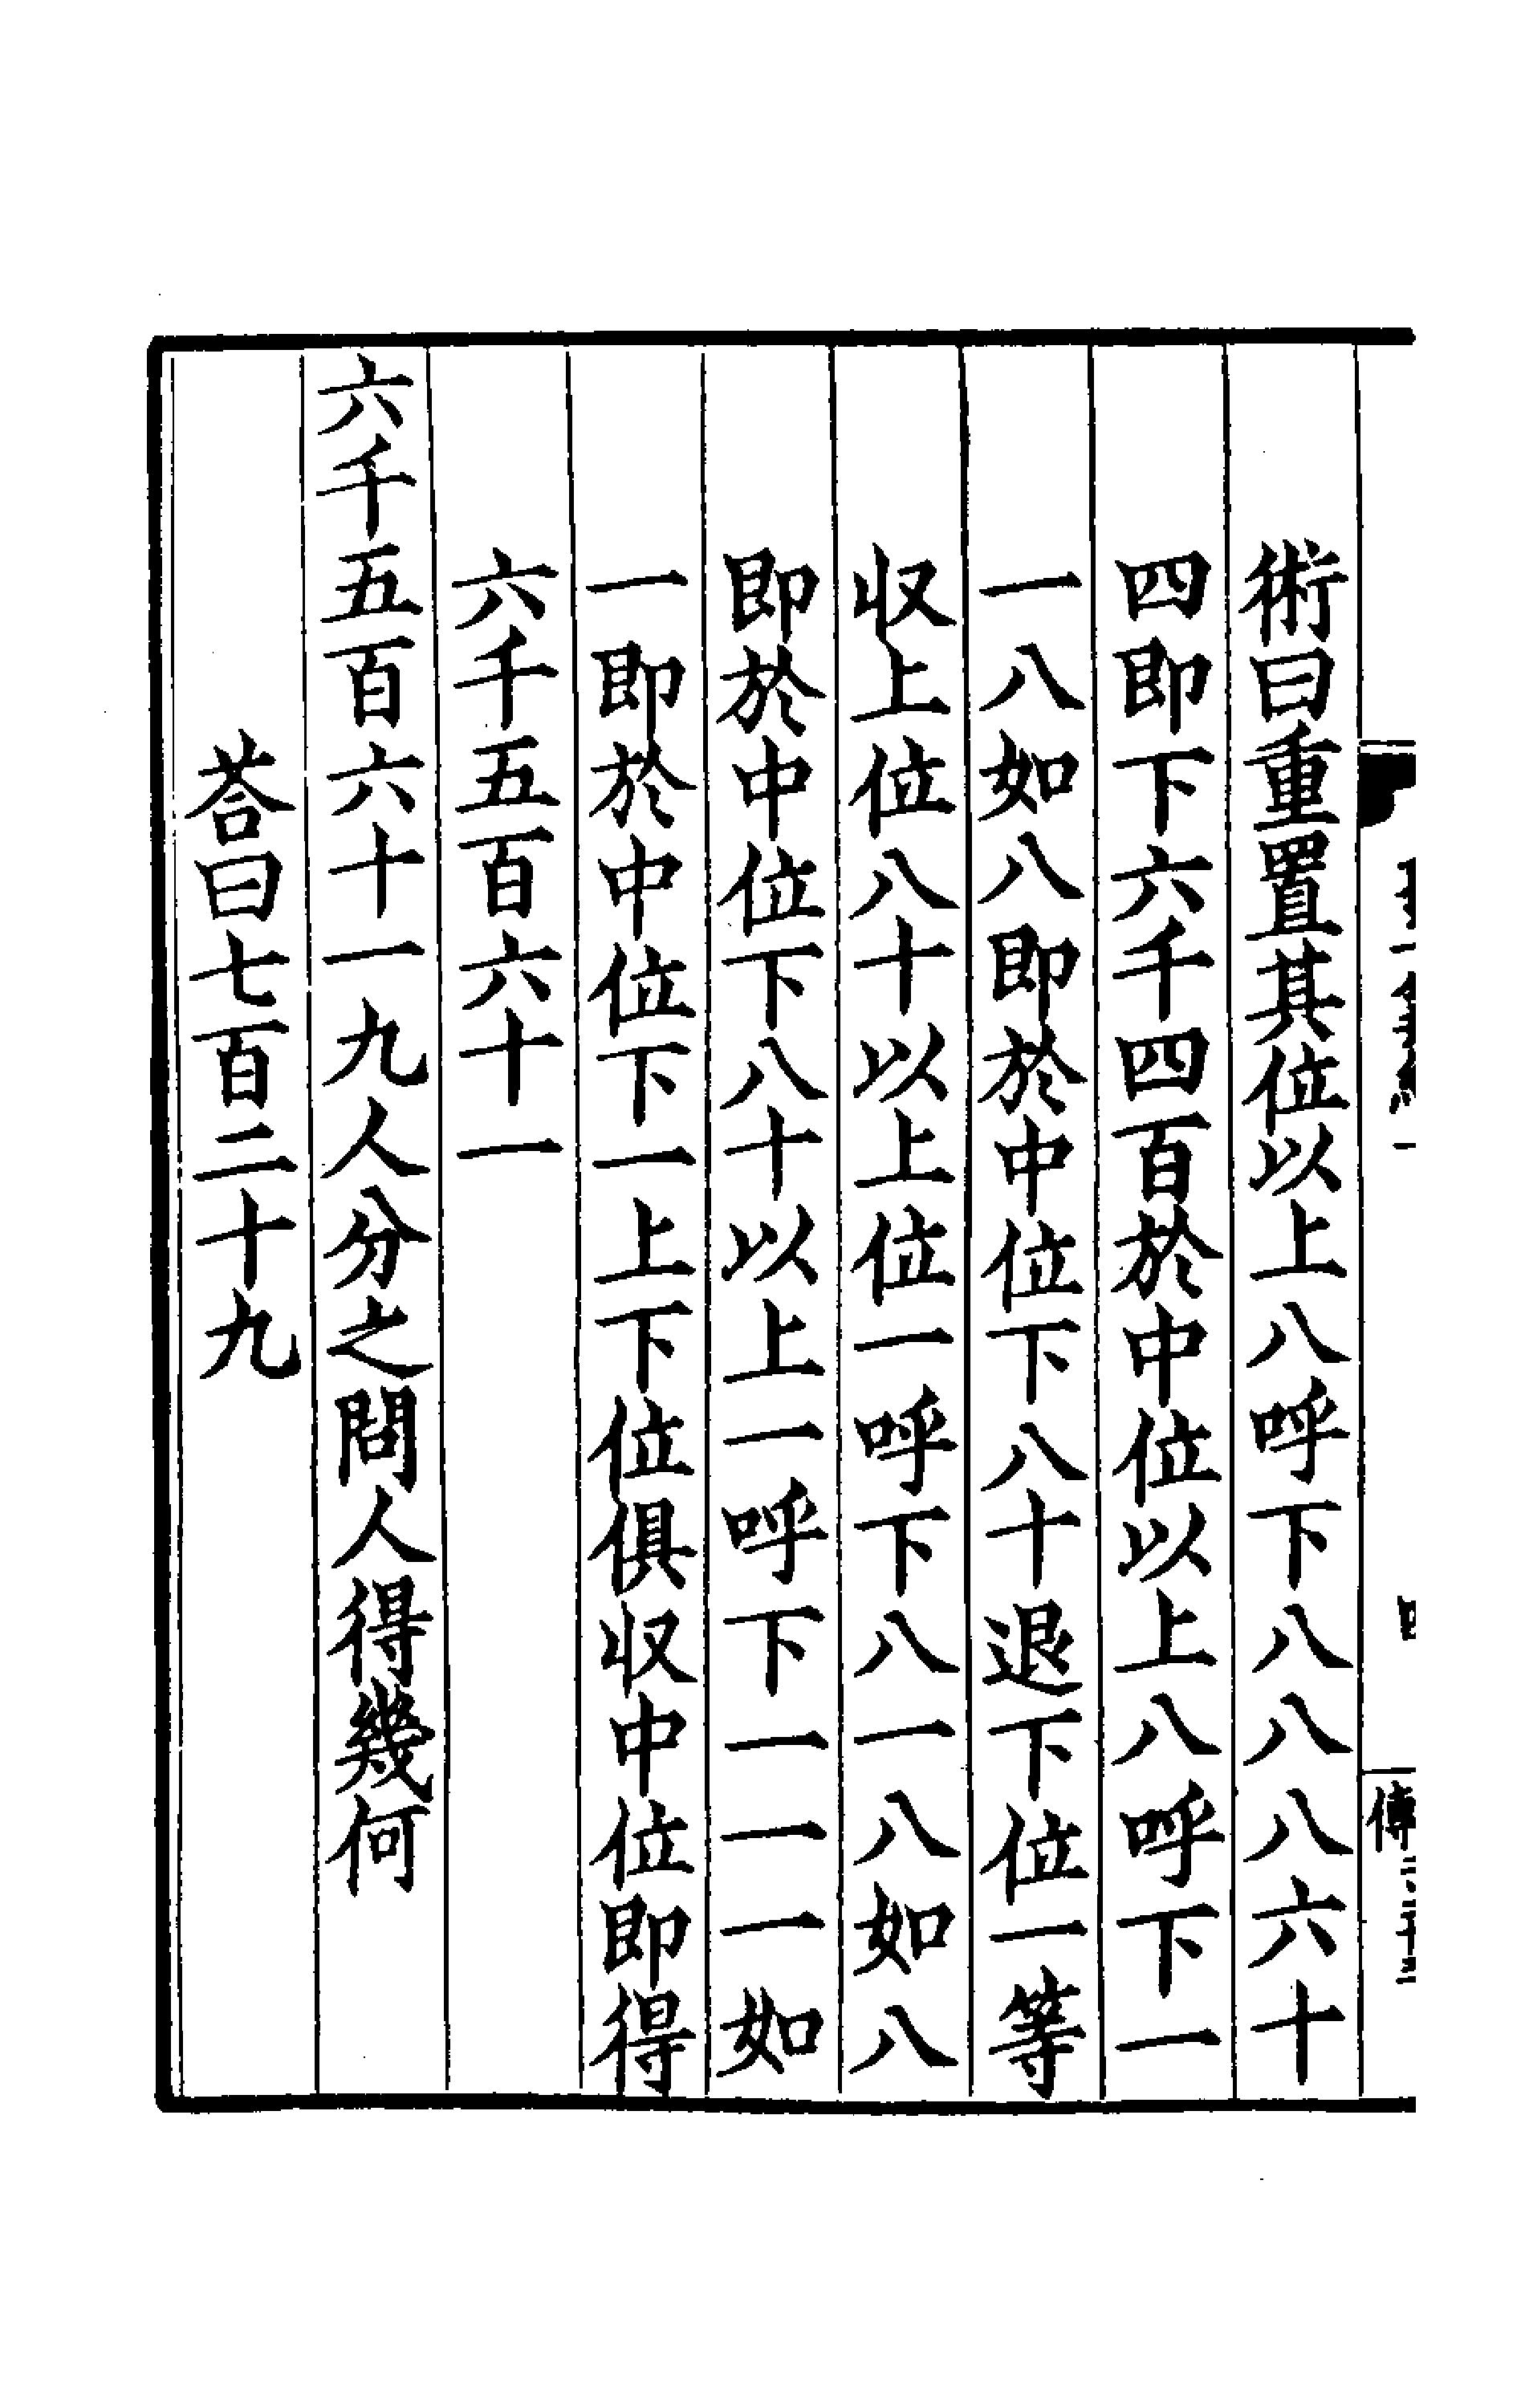 術曰重置其位以上八呼下八八八六十
四即下六千四百於中位以上八呼下一
一八如八即於中位下八十退下位一等
収上位八十以上位一呼下八一八如八
即於中位下八十以上一呼下一一一如
一即於中位下一上下位俱収中位即得
六千五百六十一
六千五百六十一九人分之問人得幾何
荅曰七百二十九
四
傳